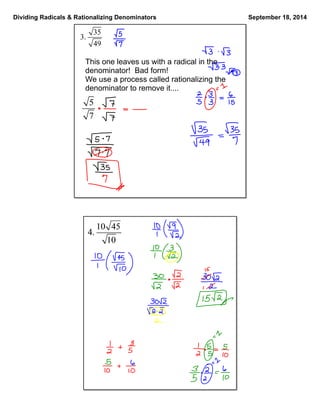 Dividing Radicals & Rationalizing Denominators September 18, 2014
3. √35/√49 √5/√7
√3 · √3
This one leaves us with a radical in the denominator! Bad form!
√3·3
We use a process called rationalizing the denominator to remove it....
√5/√7 · √7/√7 = —
2/5 (3/3) = 6/15
√5·7/√7·7
√35/√49 = √35/7
√35/7
4. 10√45/√10
10/1 (√9/√2)
10/1 (√45/√10)
10/1 (3/√2)
30/√2 · √2/√2
30√2/2
30√2/√2·2
15√2
1/2 + 3/5
1/2 · 5/5 = 5/10
5/10 + 6/10
3/5 (2/2) = 6/10